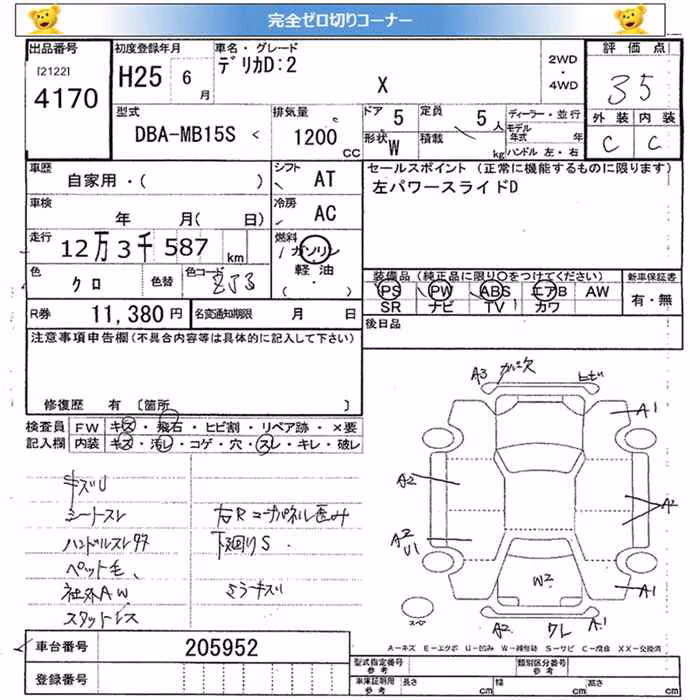 完全ゼロ切りコーナー
出品番号 初度登録年月 車名・グレード 2WD・4WD 評価点
[2122] 4170 H25 6月 デリカD:2 X 35
型式 DBA-MB15S 排気量 1200 CC ドア 5 形状 W 定員 5人 積載 kg ディーラー・並行 モデル年式 年 ハンドル 左・右 外装 C 内装 C
車歴 自家用・( ) シフト AT
セールスポイント (正常に機能するものに限ります)
左パワースライドD
車検 年 月( 日) 冷房 AC
走行 12万3千587 km 燃料 ガソリン 軽油 ( ・ )
色 クロ 色替 色コード ZJ3
装備品(純正品に限り○をつけてください) 新車保証書
PS PW ABS エアB AW 有・無
SR ナビ TV カワ
R券 11,380円 名変通知期限 月 日
後日品
注意事項申告欄(不具合内容等は具体的に記入して下さい)
修復歴 有 〔箇所 〕
検査員 FW キズ・飛石・ヒビ割・リペア跡・×要
記入欄 内装 キズ・汚レ・コゲ・穴・スレ・キレ・破レ
キズU
シートスレ 右Rコーナーパネル歪み
ハンドルスレ 下廻りS
ペット毛
社外AW ミラーキズ
スタットレス
A3 ガバ欠 ヒビ
A1
A2 A2
A2 U1
W2 A1
スペア
A2 ワレ A1
A-キズ E-エクボ U-凹み W-補修跡 S-サビ C-腐食 XX-交換済
車台番号 205952
登録番号
型式指定番号 参考 類別区分番号 参考
車庫証明用 参考 長さ cm 幅 cm 高さ cm